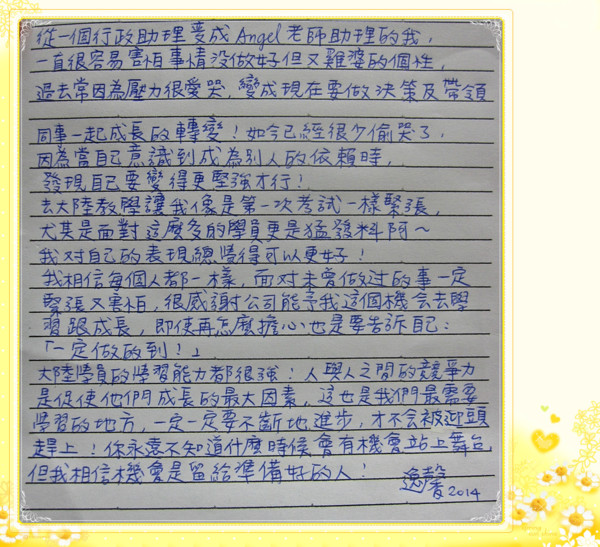 從一個行政助理變成Angel老師助理的我，
一直很容易害怕事情沒做好但又雞婆的個性，
過去常因為壓力很愛哭，變成現在要做決策及帶領
同事一起成長的轉變！如今已經很少偷哭了，
因為當自己意識到成為別人的依賴時，
發現自己要變得更堅強才行！
去大陸教學讓我像是第一次考試一樣緊張，
尤其是面對這麼多的學員更是猛發抖阿～
我對自己的表現總覺得可以更好！
我相信每個人都一樣，面对未曾做过的事一定
緊張又害怕，很感謝公司能予我這個機会去學
習跟成長，即使再怎麼擔心也是要告訴自己：
「一定做的到！」
大陸學員的學習能力都很強！人與人之間的競爭力
是促使他們成長的最大因素，這也是我們最需要
學習的地方，一定一定要不斷地進步，才不会被迎頭
趕上！你永遠不知道什麼時侯會有機會站上舞台，
但我相信機會是留給準備好的人！
逸馨2014